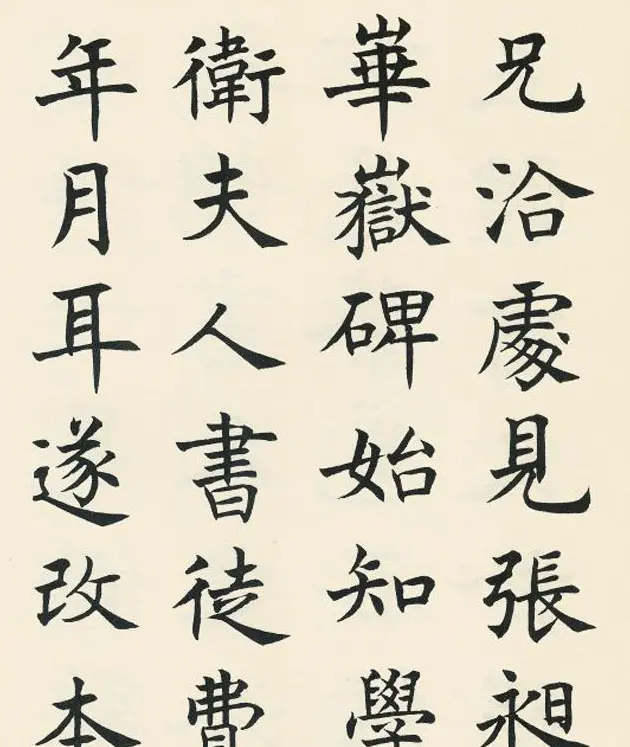 兄洽處見張昶
崋嶽碑始知學
衛夫人書徒費
年月耳遂改本